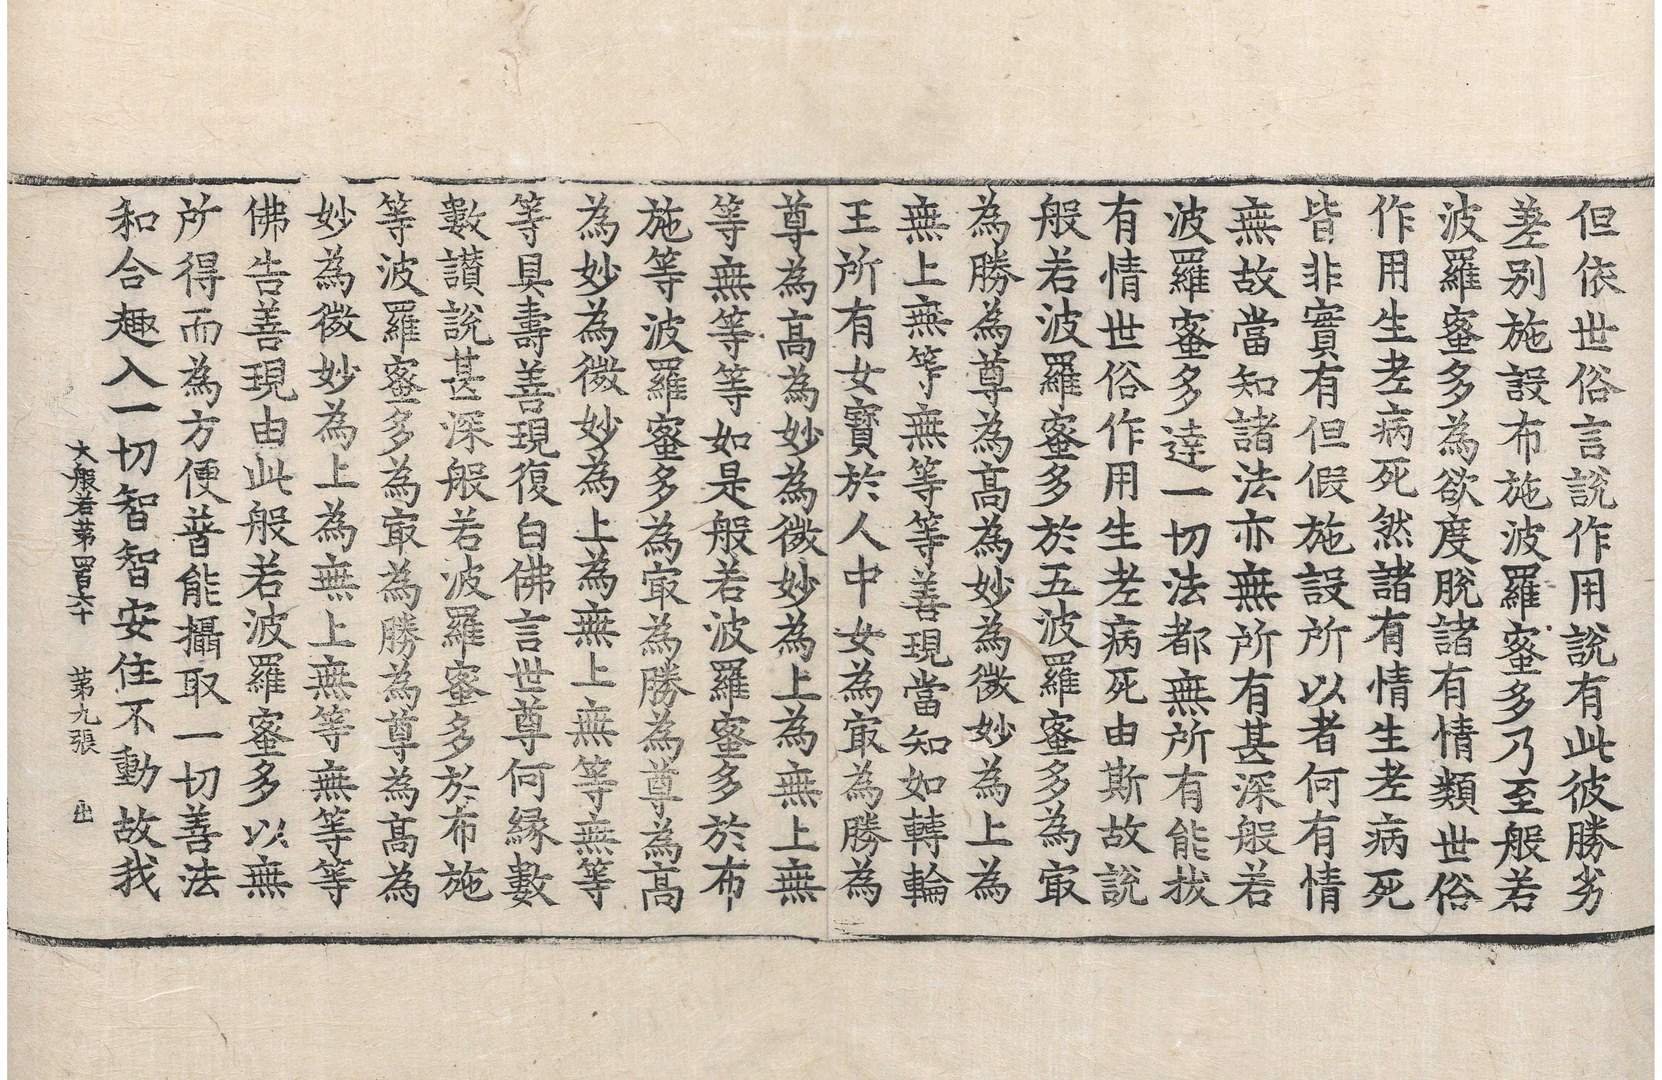 但依世俗言說作用說有此彼勝劣
差別施設布施波羅蜜多乃至般若
波羅蜜多為欲度脫諸有情類世俗
作用生老病死然諸有情生老病死
皆非實有但假施設所以者何有情
無故當知諸法亦無所有甚深般若
波羅蜜多達一切法都無所有能拔
有情世俗作用生老病死由斯故說
般若波羅蜜多於五波羅蜜多為㝡
為勝為尊為高為妙為微妙為上為
無上無等無等等善現當知如轉輪
王所有女寶於人中女為㝡為勝為
尊為高為妙為微妙為上為無上無
等無等等如是般若波羅蜜多於布
施等波羅蜜多為㝡為勝為尊為高
為妙為微妙為上為無上無等無等
等具壽善現復白佛言世尊何緣數
數讚說甚深般若波羅蜜多於布施
等波羅蜜多為㝡為勝為尊為高為
妙為微妙為上為無上無等無等等
佛告善現由此般若波羅蜜多以無
所得而為方便普能攝取一切善法
和合趣入一切智智安住不動故我
大般若第四百六十 第九張 出